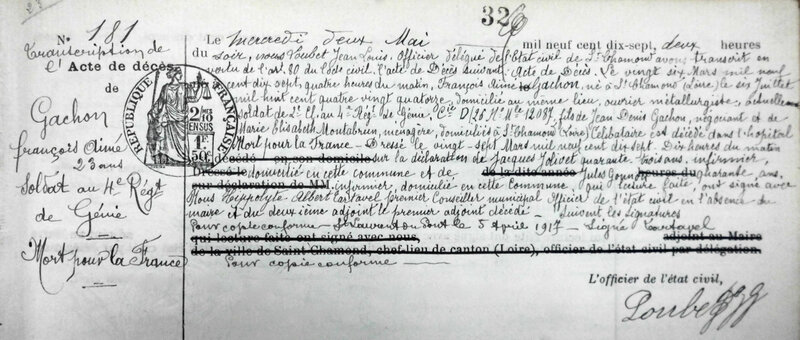 N° 181
Transcription de
l'Acte de décès
de
Gachon
François Aimé
23 ans
Soldat au 4e Régt
de Génie
Mort pour la France
RÉPUBLIQUE FRANÇAISE
2/10 EN SUS
1F 50c
32
Le Mercredi deux Mai mil neuf cent dix-sept, deux heures
du soir, nous Loubet Jean Louis, Officier délégué de l'Etat civil de St Chamond avons transcrit en
vertu de l'art. 80 du Code civil, l'acte de Décès suivant. Acte de Décès. Le vingt six Mars mil neuf
cent dix sept, quatre heures du matin, François Aimé Gachon, né à St Chamond (Loire) le six Juillet
mil huit cent quatre vingt quatorze, domicilié au même lieu, ouvrier métallurgiste, actuellement
soldat de 2e Cl. au 4e Rég. de Génie, Cie D/36, Mle 12087, fils de Jean Denis Gachon, négociant et de
Marie Elisabeth Montabrun, ménagère, domiciliés à St Chamond (Loire) Célibataire est décédé dans l'hôpital
Mort pour la France - Dressé le vingt-sept Mars mil neuf cent dix sept. Dix heures du matin
décédé en son domicile sur la déclaration de Jacques Jolivet quarante trois ans, infirmier,
Dressé le domicilié en cette commune et de de la dite année Jules Gonn heures du quarante ans.
sur déclaration de MM infirmier, domicilié en cette commune, qui lecture faite, ont signé avec
Nous Hippolyte Albert Cartavel premier Conseiller municipal Officier de l'état civil en l'absence du
maire et du deuxième adjoint le premier adjoint décédé - Suivent les signatures
Pour copie conforme - St Laurent du Pont le 5 Avril 1917 - Signé Cartavel
qui lecture faite ont signé avec nous, adjoint au Maire
de la ville de Saint Chamond, chef-lieu de canton (Loire), officier de l'état civil par délégation.
Pour copie conforme
L'officier de l'état civil,
Loubet